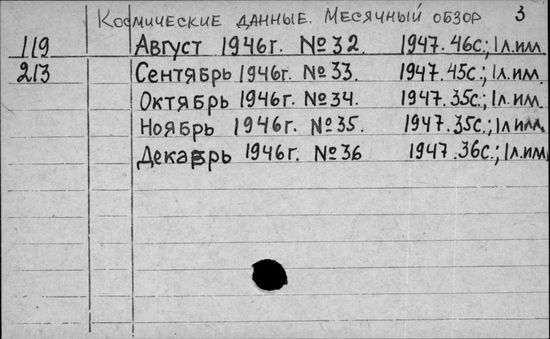 Космические данные. Месячный обзор 3
119 Август 1946г. №32. 1947. 46с.; 1л.илл.
213 Сентябрь 1946г. №33. 1947. 45с.; 1л.илл.
Октябрь 1946г. №34. 1947. 35с.; 1л.илл.
Ноябрь 1946г. №35. 1947. 35с.; 1л.илл.
Декабрь 1946г. №36 1947. 36с.; 1л.илл